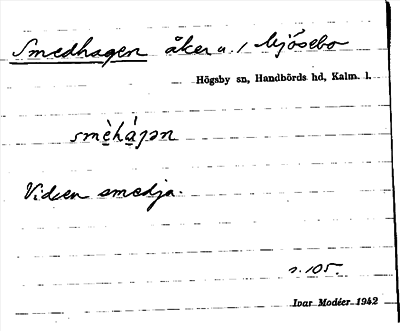 Smedhagen åker u. / Mjösebo
Högsby sn, Handbörds hd, Kalm. l.
smèhá̱ɡən
Vid en smedja.
s. 105.
Ivar Modéer 1942